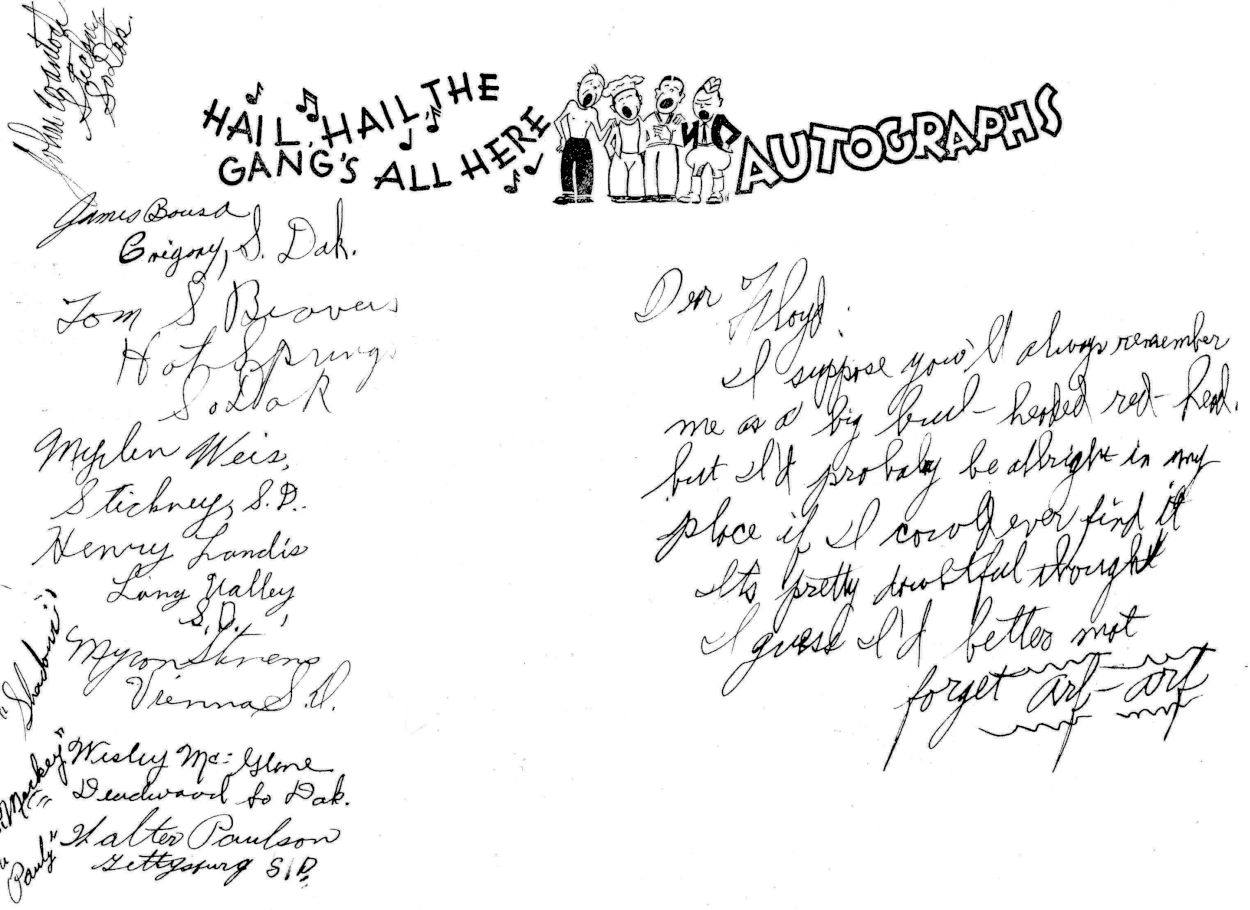 John
Stickney
So Dak.
HAIL, HAIL THE
GANG'S ALL HERE
AUTOGRAPHS
James Bousa
Grigory, S. Dak.
Tom S Beavers
Hot Springs
So Dak
Weis,
Stickney, S.D.
Henry Landis
Long Valley
S.D.
Myron Stevens
Vienna S.D.
"Markey" Wesley Mc-Glone
Deadwood So Dak.
"Pauly" Walter Paulson
Gettysburg S.D.
Dear Floyd:
I suppose you'll always remember
me as a big bull-headed red-head.
but I'd probaly be allright in my
place if I could ever find it
Its pretty doubtful thought
I guess I'd better not
forget arf-arf